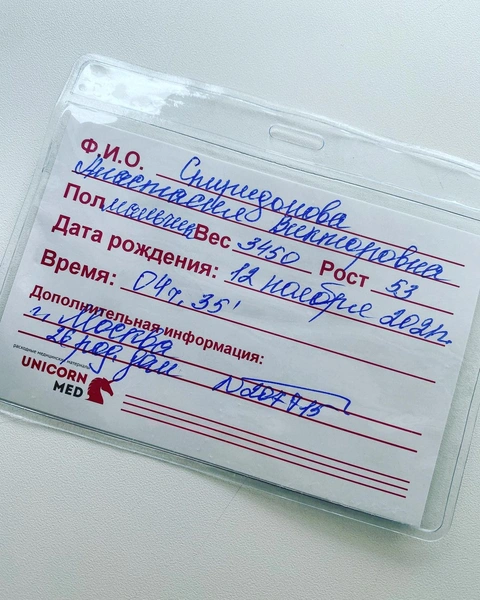 Ф.И.О. Спиридонова
Анастасия Викторовна
Пол мальчик Вес 3450 Рост 53
Дата рождения: 12 ноября 2021г.
Время: 04ч. 35'
Дополнительная информация:
г. Москва
26 род. дом №204715
расходные медицинские материалы
UNICORN
MED